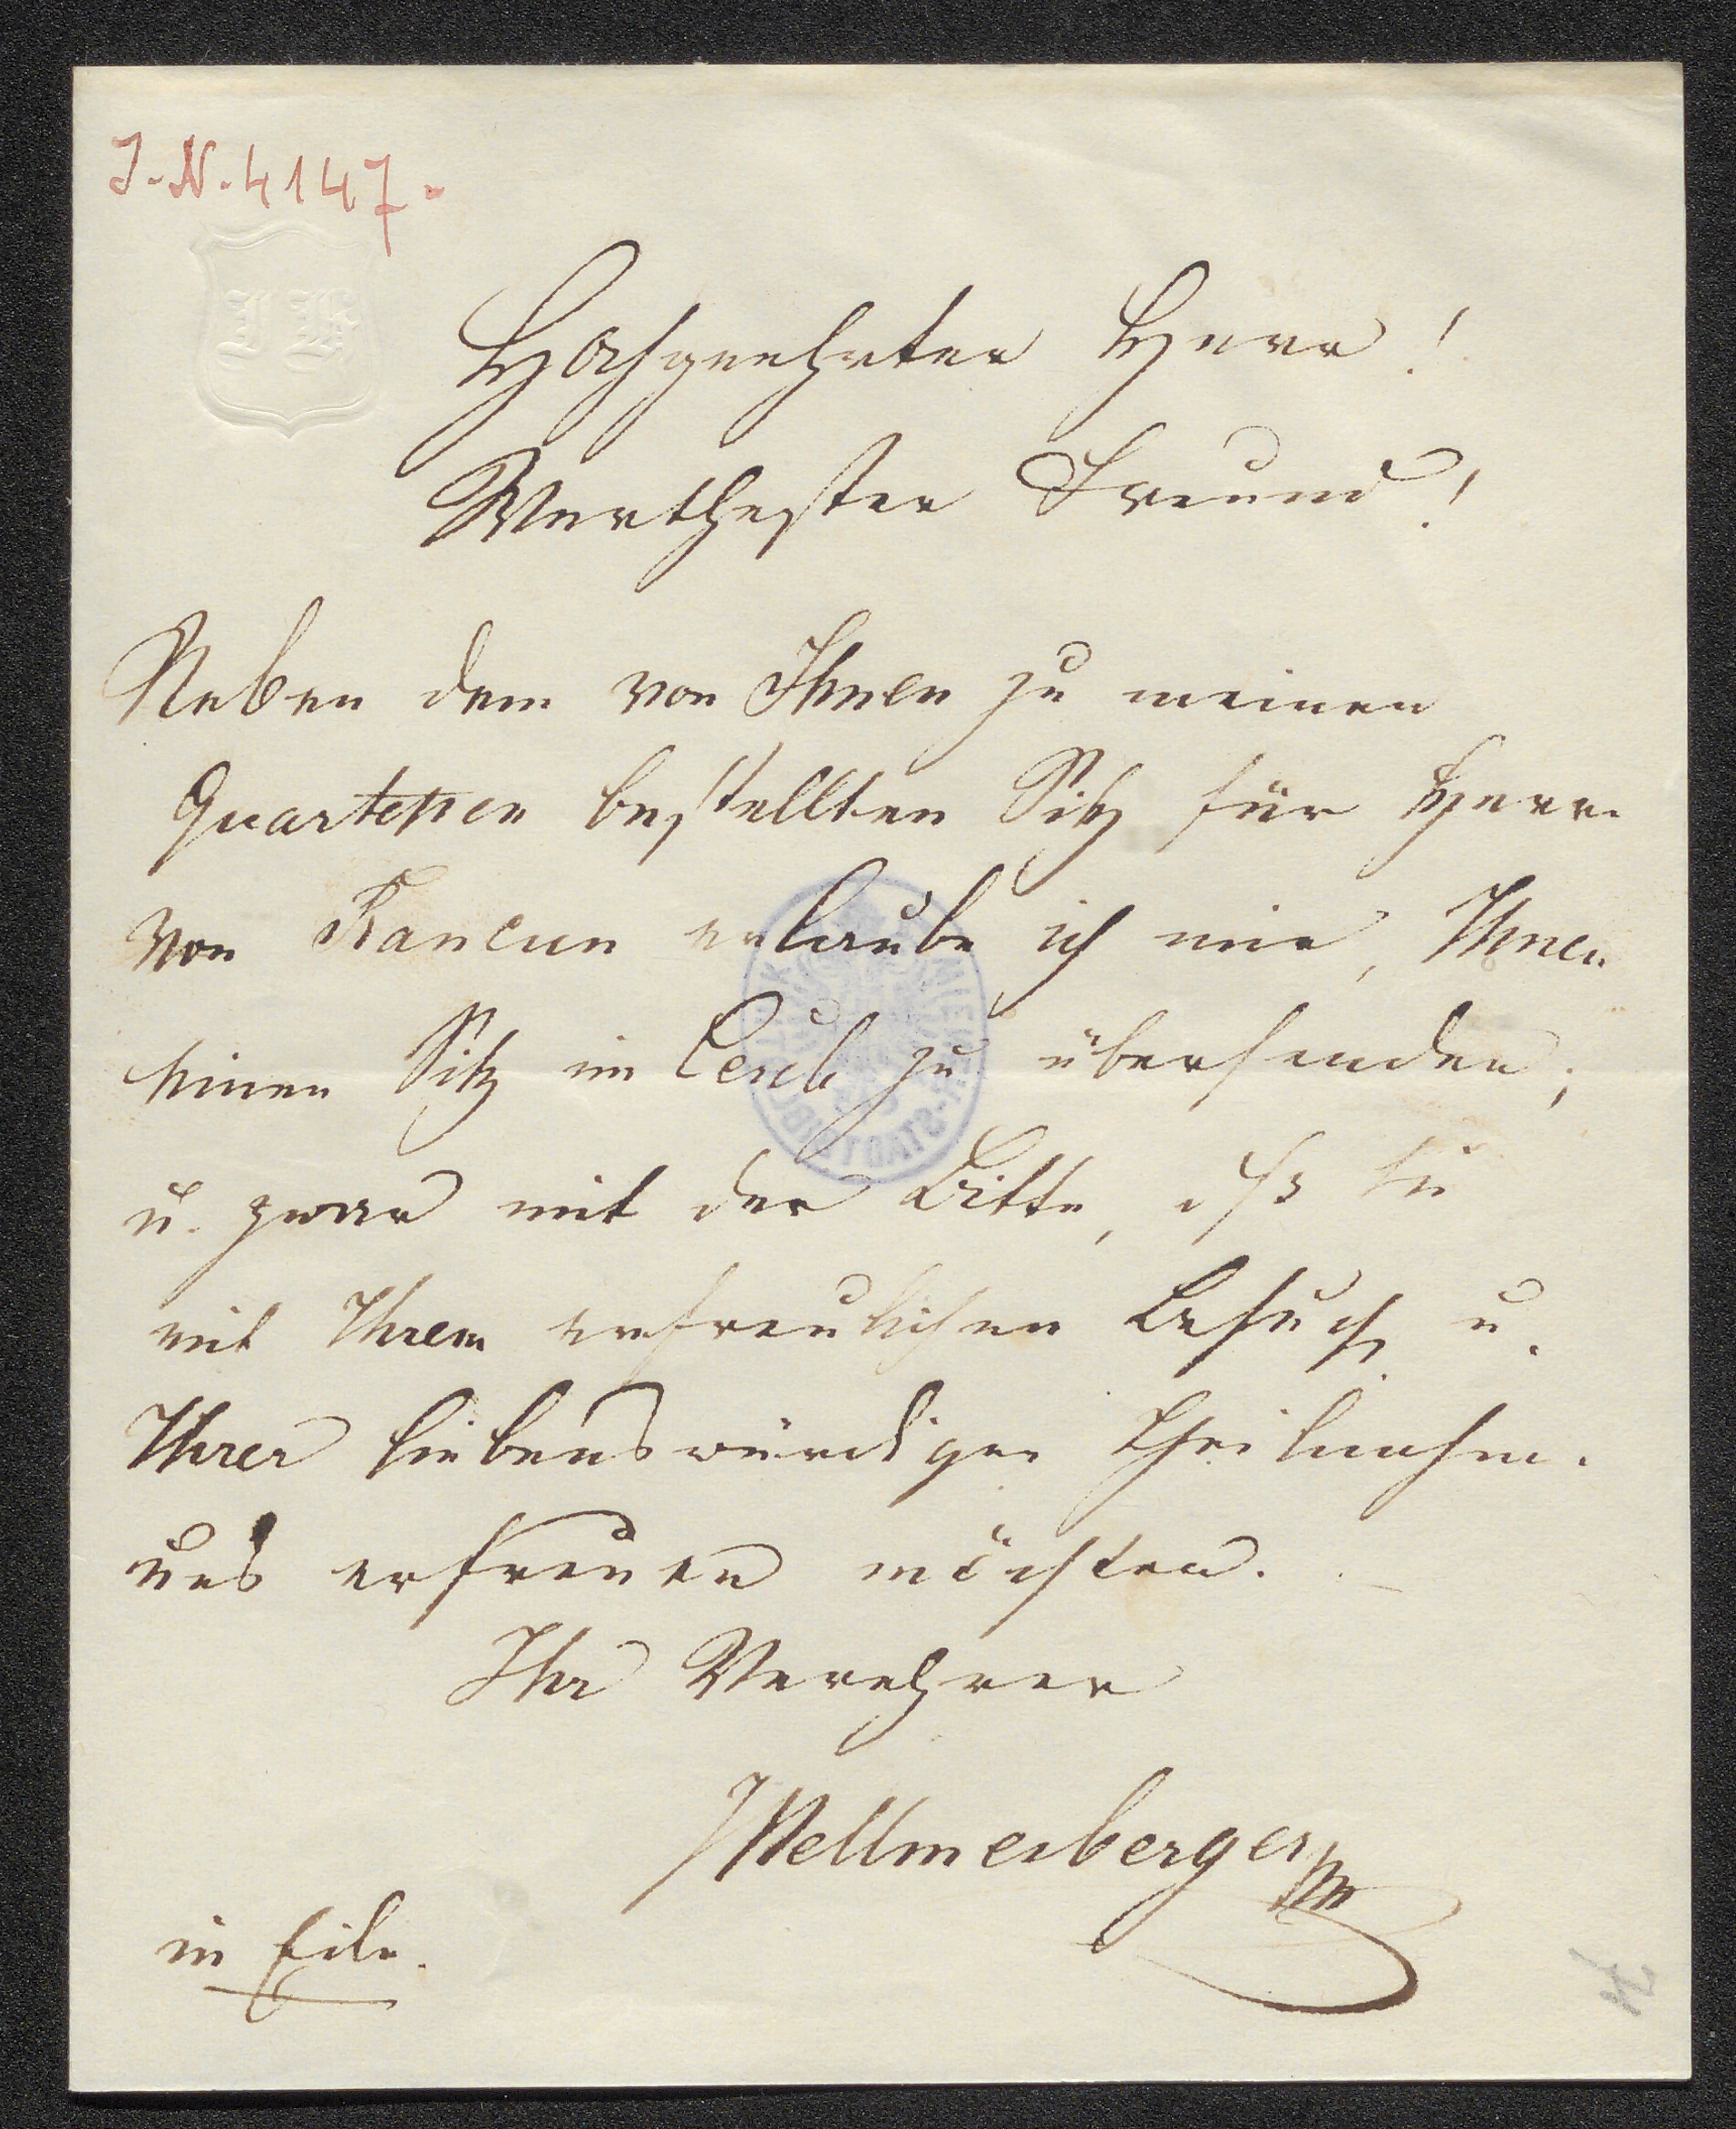 J.N. 4147.
Hochgeehrter Herr!
Werthester Freund!
Neben dem von Ihnen zu meinen
Quartetten bestellten Sitz für Herrn
von erlaube ich mir, Ihnen
einen Sitz im Cercle zu übersenden;
u. zwar mit der Bitte, dß Sie
mit Ihrem erfreulichen Besuch u.
Ihrer liebenswürdigen Theilnahme
uns erfreuen möchten. –
Ihr Verehrer
JHellmesberger
in Eile.